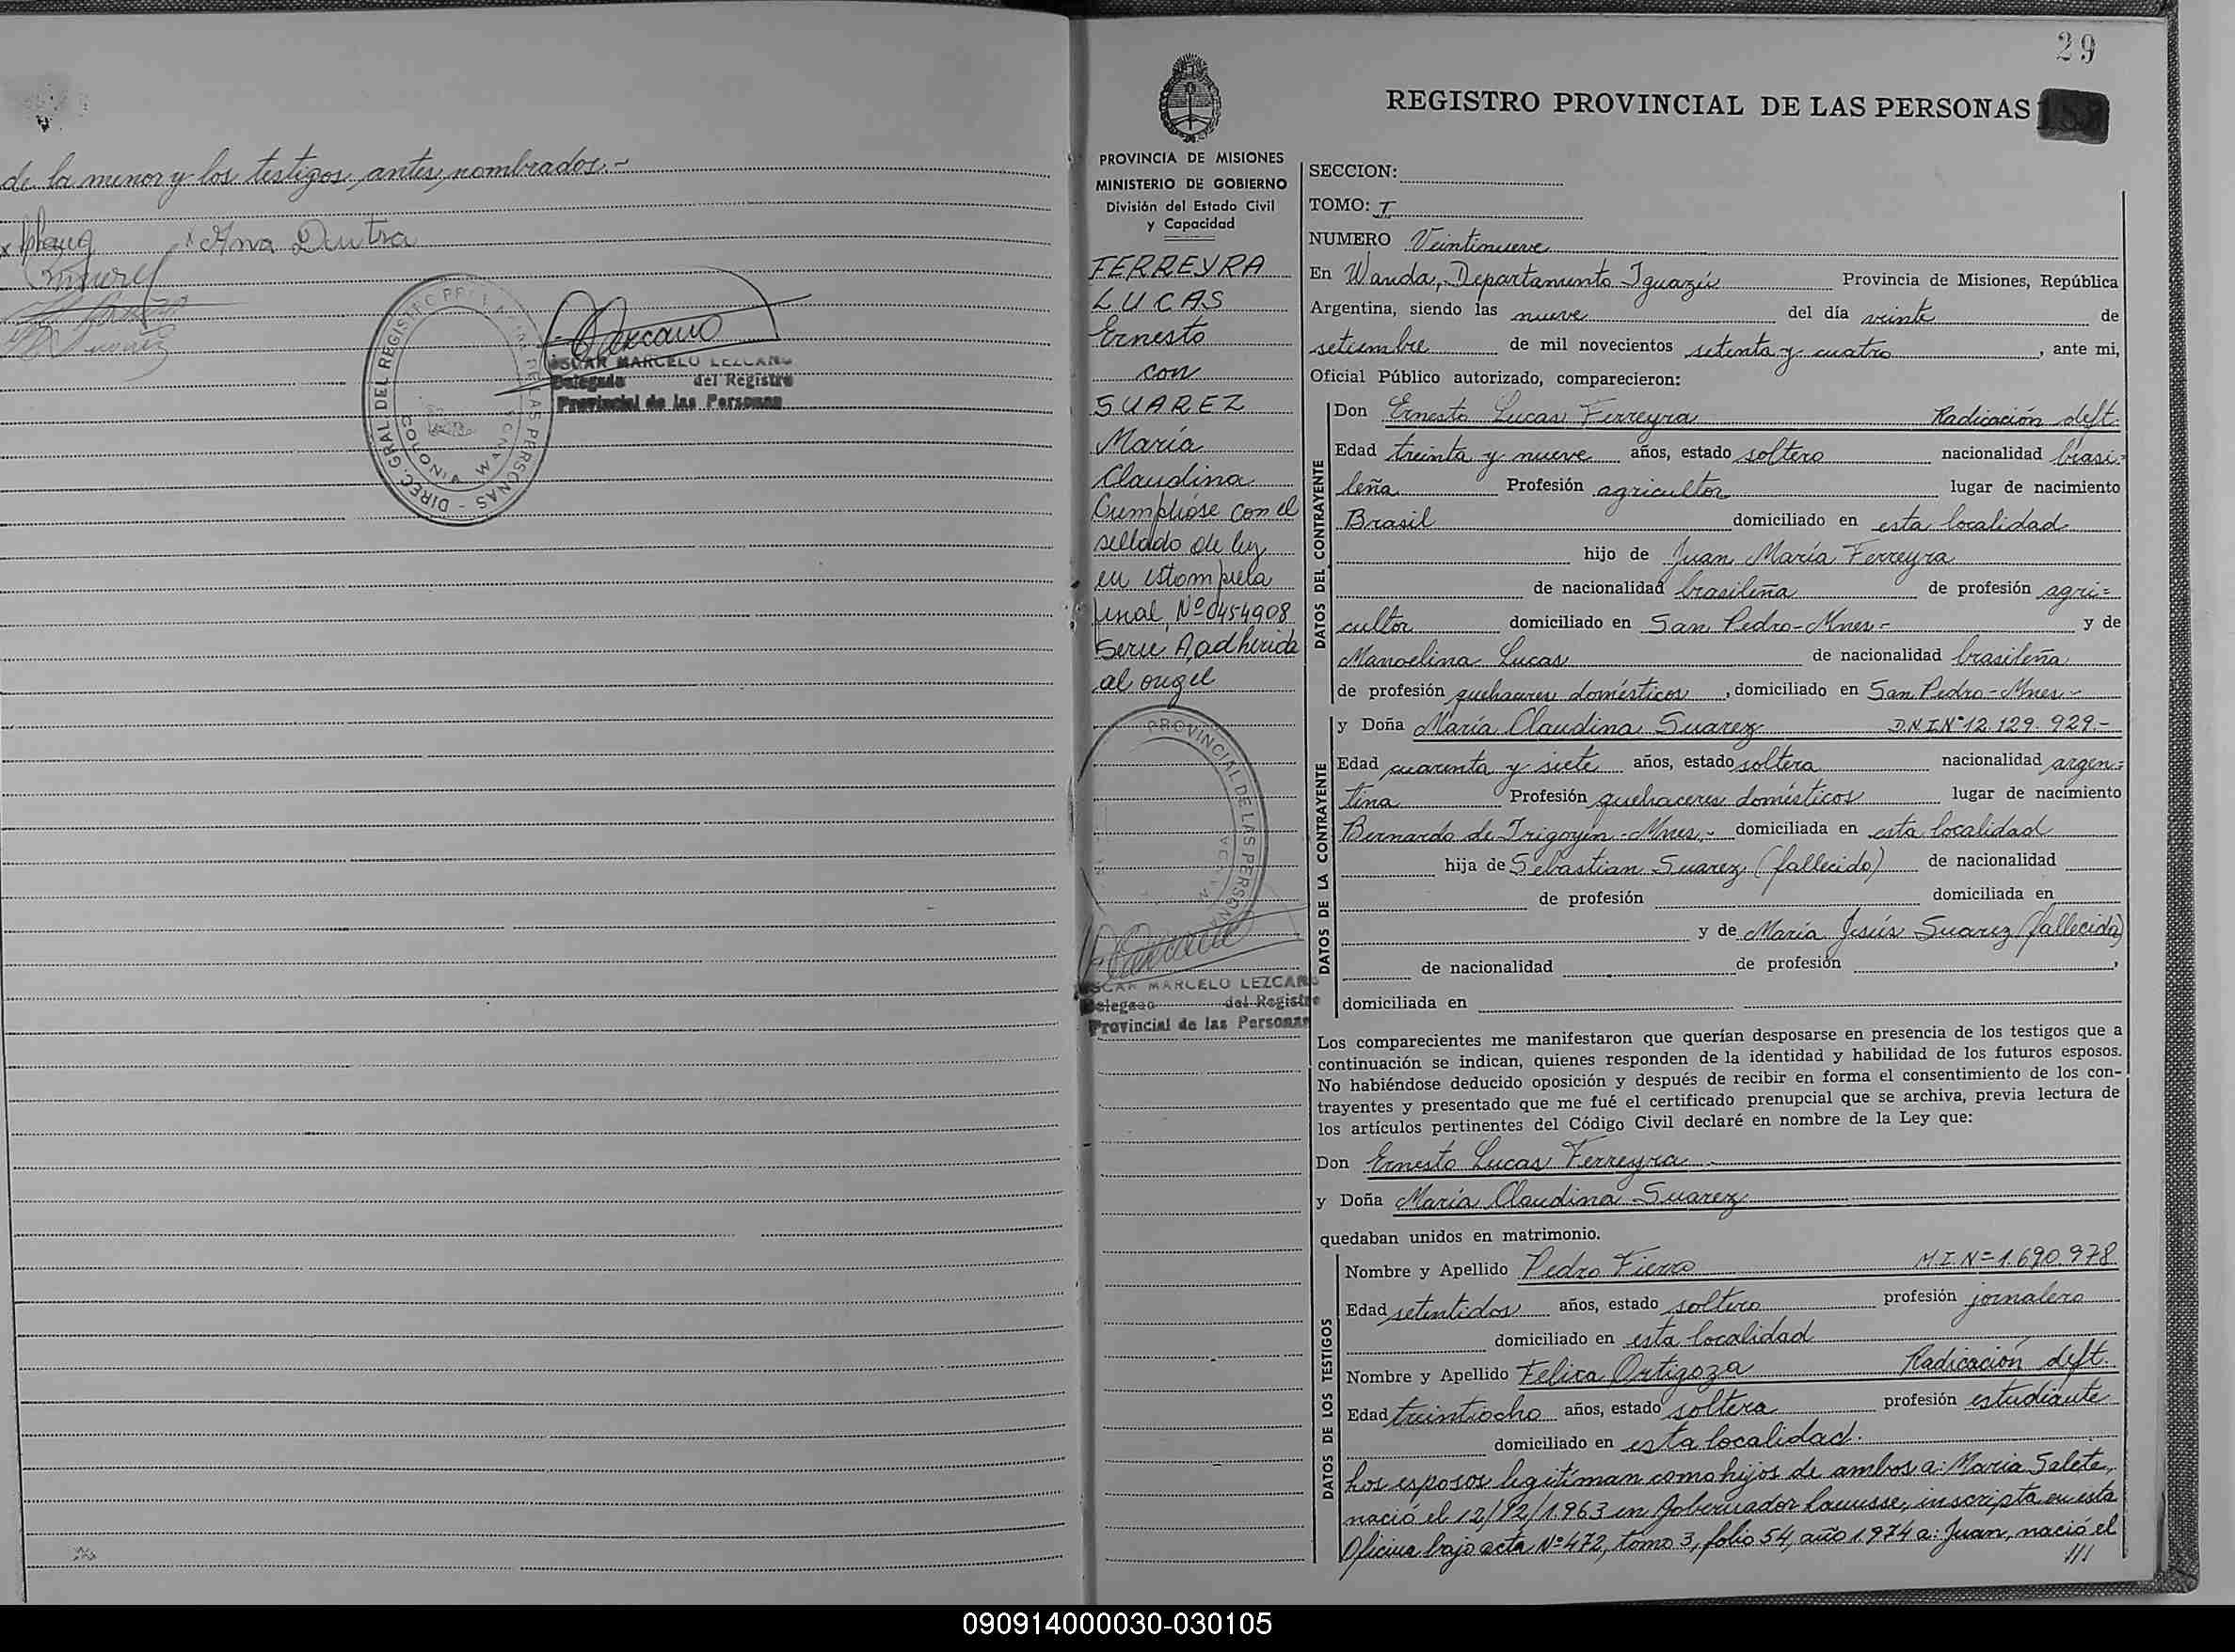 de la menor y los testigos, antes, nombrados.-
x Ana Dutra
DIREC. GRAL DEL REGISTRO PROVINCIAL DE LAS PERSONAS -
COLONIA WANDA
OSCAR MARCELO LEZCANO
Delegado del Registro
Provincial de las Personas
29
REGISTRO PROVINCIAL DE LAS PERSONAS
PROVINCIA DE MISIONES
MINISTERIO DE GOBIERNO
División del Estado Civil
y Capacidad
FERREYRA
LUCAS
Ernesto
con
SUAREZ
María
Claudina
Cumplióse con el
sellado de ley
en estampilla
Nº 0454908
Serie A, adherida
al
PROVINCIAL DE LAS PERSONAS
OSCAR MARCELO LEZCANO
Delegado del Registro
Provincial de las Personas
SECCION:
TOMO: I
NUMERO Veintinueve
En Wanda, Departamento Iguazú Provincia de Misiones, República
Argentina, siendo las nueve del día veinte de
setiembre de mil novecientos setenta y cuatro, ante mi,
Oficial Público autorizado, comparecieron:
DATOS DEL CONTRAYENTE
Don Ernesto Lucas Ferreyra Radicación deft.
Edad treinta y nueve años, estado soltero nacionalidad brasi=
leña Profesión agricultor lugar de nacimiento
Brasil domiciliado en esta localidad
hijo de Juan María Ferreyra
de nacionalidad brasileña de profesión agri=
cultor domiciliado en San Pedro-Mnes- y de
Manoelina Lucas de nacionalidad brasileña
de profesión quehaceres domésticos, domiciliado en San Pedro-Mnes-
DATOS DE LA CONTRAYENTE
y Doña María Claudina Suarez D.N.I.Nº 12.129.929-
Edad cuarenta y siete años, estado soltera nacionalidad argen=
tina Profesión quehaceres domésticos lugar de nacimiento
Bernardo de Irigoyen-Mnes,- domiciliada en esta localidad
hija de Sebastian Suarez (fallecido) de nacionalidad
de profesión domiciliada en
y de María Jesús Suarez (fallecida)
de nacionalidad de profesión ,
domiciliada en
Los comparecientes me manifestaron que querían desposarse en presencia de los testigos que a
continuación se indican, quienes responden de la identidad y habilidad de los futuros esposos.
No habiéndose deducido oposición y después de recibir en forma el consentimiento de los con-
trayentes y presentado que me fué el certificado prenupcial que se archiva, previa lectura de
los artículos pertinentes del Código Civil declaré en nombre de la Ley que:
Don Ernesto Lucas Ferreyra
y Doña María Claudina Suarez
quedaban unidos en matrimonio.
DATOS DE LOS TESTIGOS
Nombre y Apellido Pedro Fierro M.I.Nº 1.690.978
Edad setentidos años, estado soltero profesión jornalero
domiciliado en esta localidad
Nombre y Apellido Felica Ortigoza Radicación deft.
Edad treintiocho años, estado soltera profesión estudiante
domiciliado en esta localidad.
Los esposos legitiman como hijos de ambos a: María Salete,
nació el 12/12/1.963 en Gobernador Lanusse, inscripta en esta
Oficina bajo acta Nº 472, tomo 3, folio 54, año 1.974 a: Juan, nació el
///
090914000030-030105